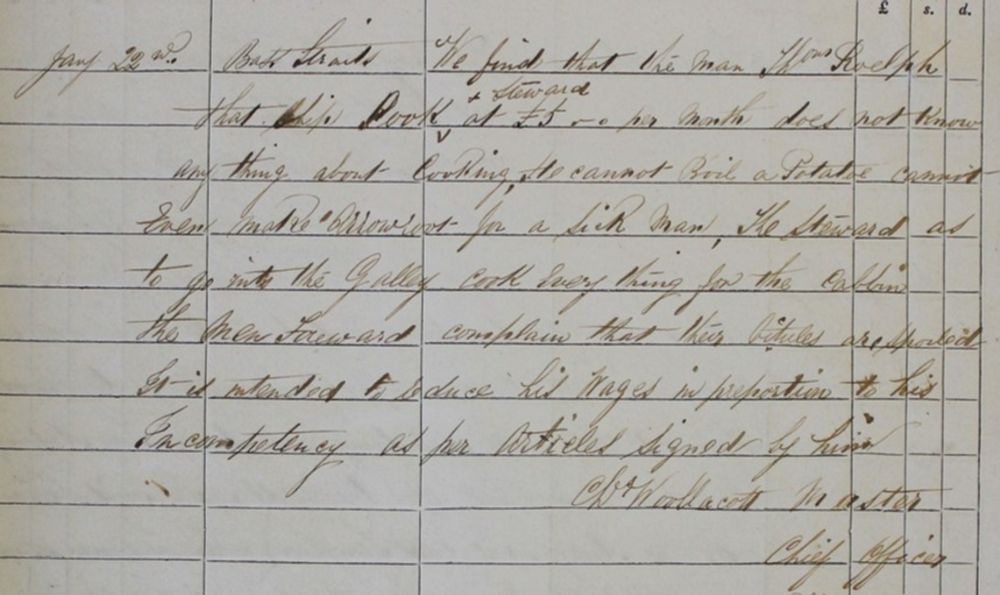 £ s. d.
Jany 22nd. Bass Straits We find that the man Thos Roelph
+ Steward
that ship Cook at £5 - - per month does not know
any thing about Cooking, He cannot Boil a Potatoe cannot
Even make Arrowroot for a sick Man, The Steward as
to go into the Galley cook Every thing for the Cabbin
the Men Foreward complain that their vitules are spoiled
It is intended to reduce his Wages in preportion to his
Incompetency as per Articles signed by him
Woollacott Master
Chief Officer